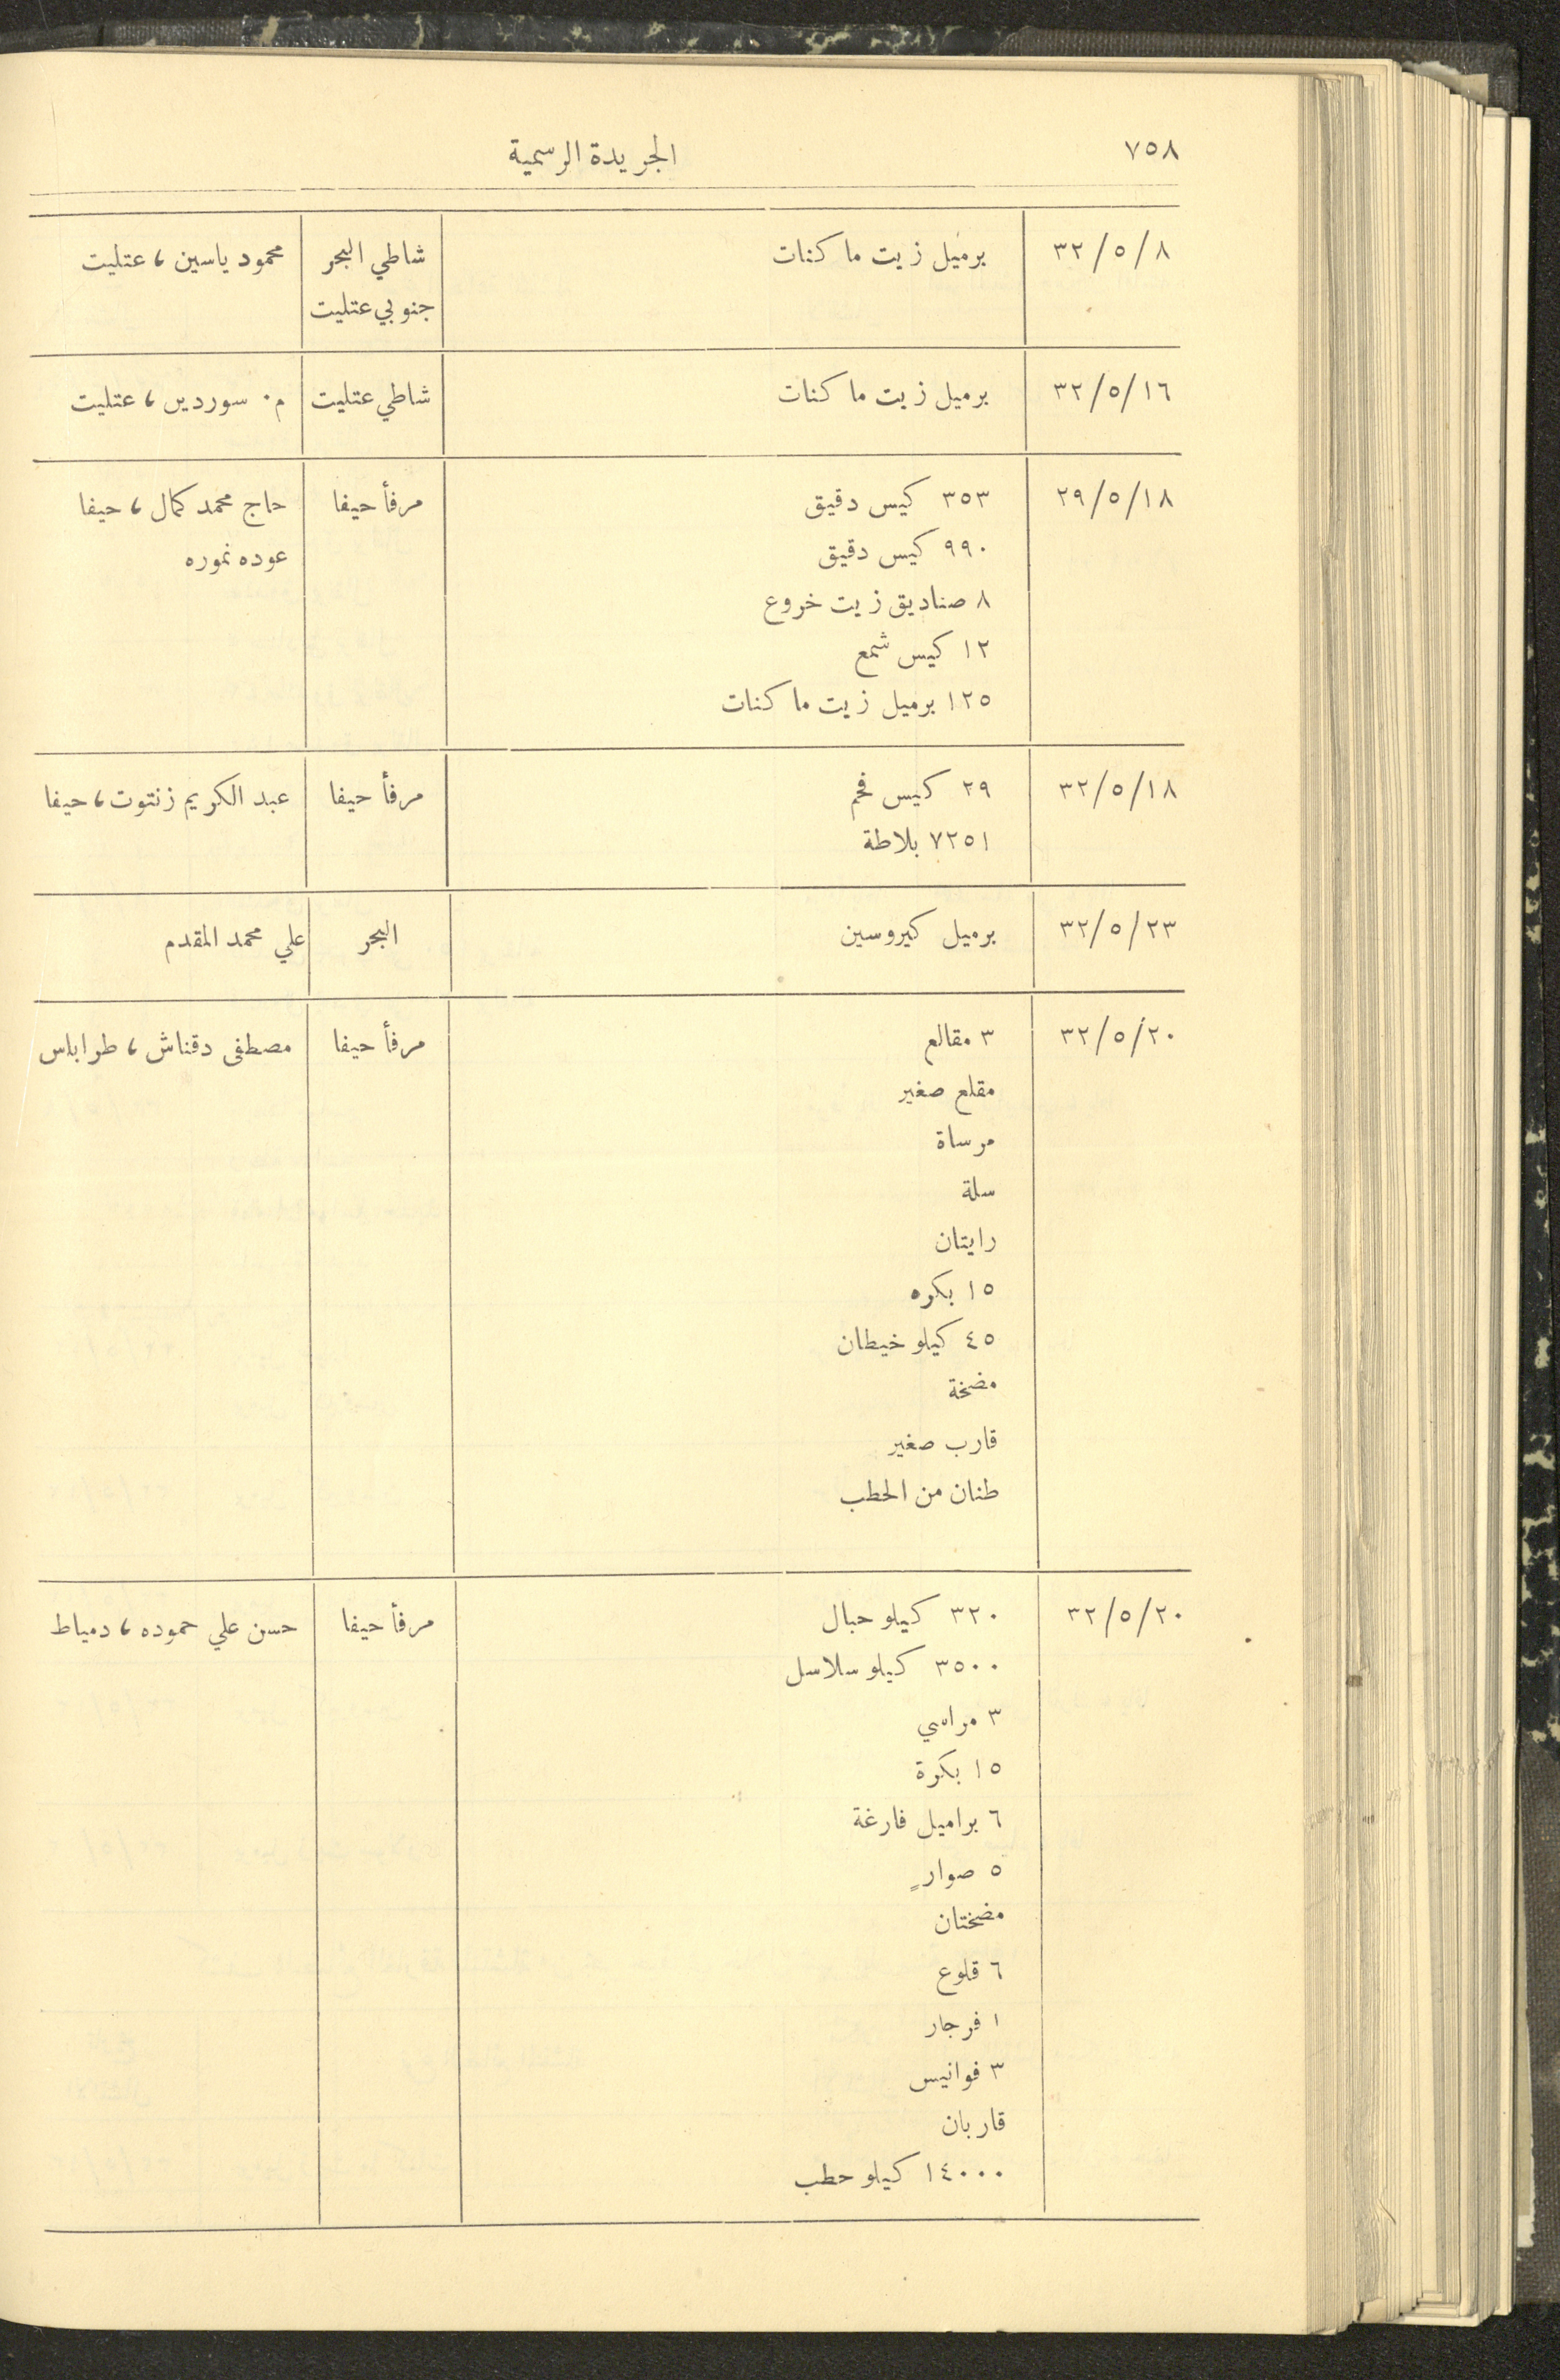 ٧٥٨ الجريدة الرسمية
٣٢/٥/٨ برميل زيت ماكنات شاطي البحر محمود ياسين، عتليت
جنوبي عتليت
٣٢/٥/١٦ برميل زيت ماكنات شاطي عتليت م. سورديس، عتليت
٢٩/٥/١٨ ٣٥٣ كيس دقيق مرفأ حيفا حاج محمد كمال، حيفا
٩٩٠ كيس دقيق عوده نموره
٨ صناديق زيت خروع
١٢ كيس شمع
١٢٥ برميل زيت ماكنات
٣٢/٥/١٨ ٢٩ كيس فحم مرفأ حيفا عبد الكريم زنتوت، حيفا
٧٢٥١ بلاطة
٣٢/٥/٢٣ برميل كيروسين البحر علي محمد المقدم
٣٢/٥/٢٠ ٣ مقالع مرفأ حيفا مصطفى دقناش، طرابلس
مقلع صغير
مرساة
سلة
رايتان
١٥ بكره
٤٥ كيلو خيطان
مضخة
قارب صغير
طنان من الحطب
٣٢/٥/٢٠ ٣٢٠ كيلو حبال مرفأ حيفا حسن علي حموده، دمياط
٣٥٠٠ كيلو سلاسل
٣ مراسي
١٥ بكرة
٦ براميل فارغة
٥ صوارٍ
مضختان
٦ قلوع
١ فرجار
٣ فوانيس
قاربان
١٤٠٠٠ كيلو حطب